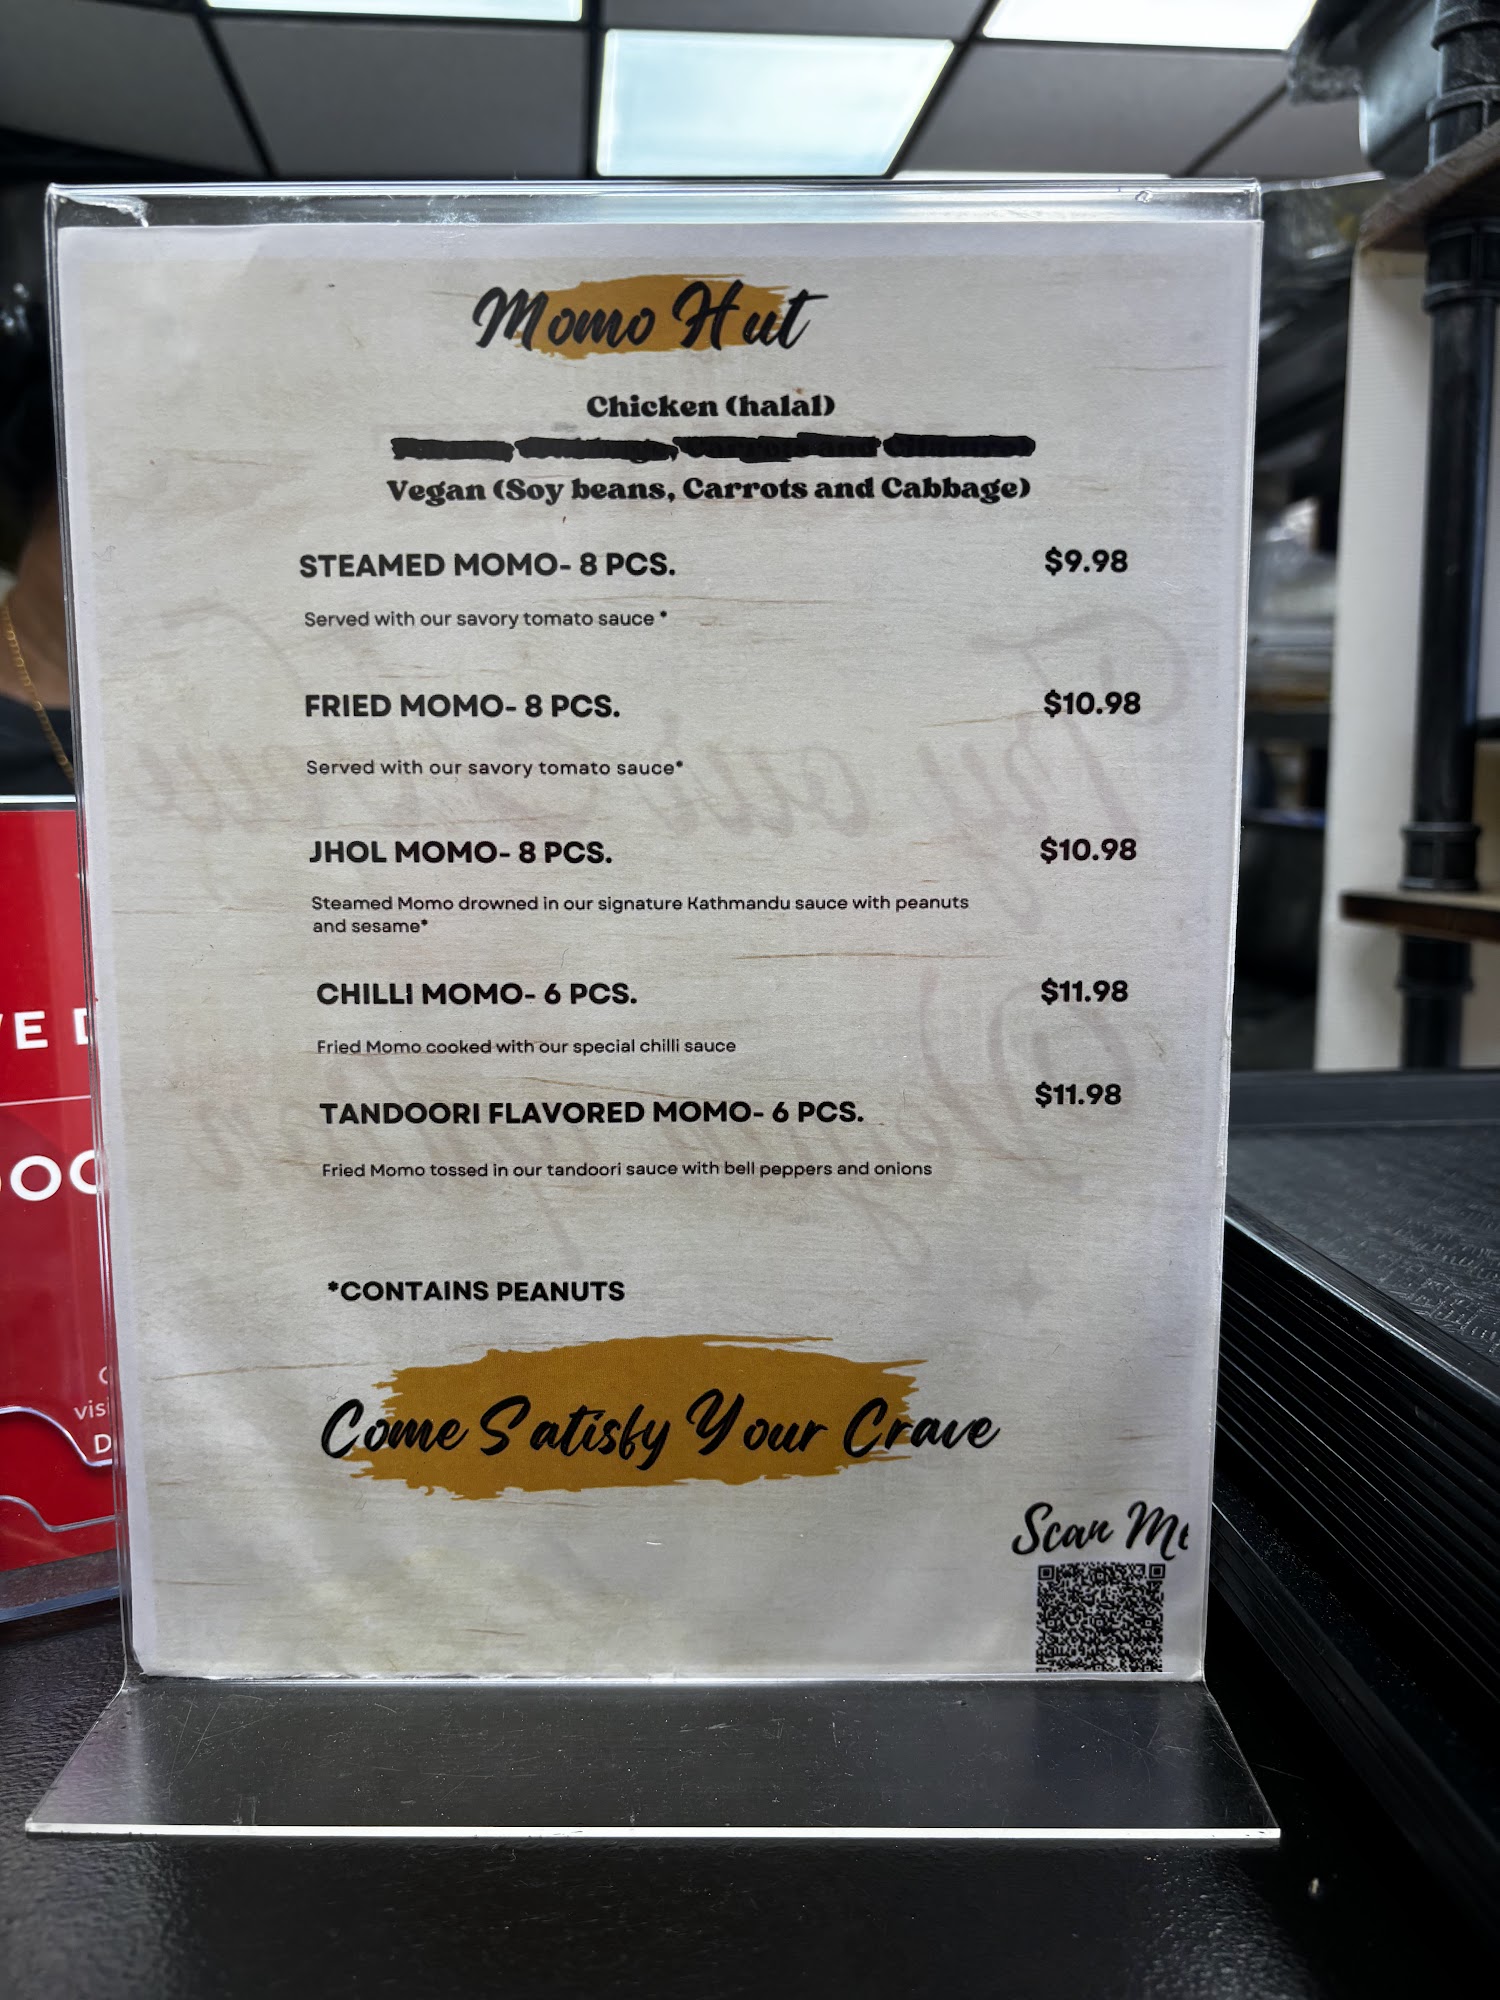 Momo Hut
Chicken (halal)
Vegan (Soy beans, Carrots and Cabbage)
STEAMED MOMO- 8 PCS. $9.98
Served with our savory tomato sauce *
FRIED MOMO- 8 PCS. $10.98
Served with our savory tomato sauce*
JHOL MOMO- 8 PCS. $10.98
Steamed Momo drowned in our signature Kathmandu sauce with peanuts
and sesame*
CHILLI MOMO- 6 PCS. $11.98
Fried Momo cooked with our special chilli sauce
TANDOORI FLAVORED MOMO- 6 PCS. $11.98
Fried Momo tossed in our tandoori sauce with bell peppers and onions
*CONTAINS PEANUTS
Come Satisfy Your Crave
Scan Me